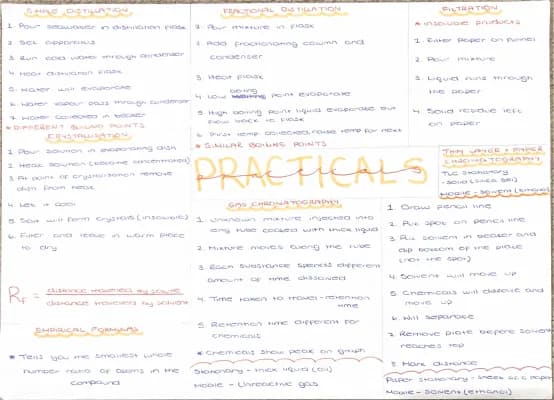 SIMPLE DISTILLATION
1. Pour seawater in distillation flask
2. Set apparatus
3. Run cold water through condenser
4. Heat distillation flask
5. Water will evaporate
6. Water vapour pass through condenser
7. Water collected in beaker
* DIFFERENT BOILING POINTS
CRYSTALLISATION
1. Pour solution in evaporating dish
2. Heat solution (become concentrated)
3. At point of crystallisation remove
dish from heat
4. Let it cool
5. Salt will form crystals (insoluble)
6. Filter and leave in warm place
to dry
Rf = distance travelled by solute
distance travelled by solvent
EMPIRICAL FORMULAS
* Tells you the smallest whole
number ratio of atoms in the
compound
FRACTIONAL DISTILLATION
1. Pour mixture in flask
2. Add fractionating column and
condenser
3. Heat flask
boiling
4. Low point evaporate
5. High boiling point liquid evaporate but
flow back to flask
6. First temp collected, raise temp for next
* SIMILAR BOILING POINTS
PRACTICALS
practicals
GAS CHROMATOGRAPHY
1. Unknown mixture injected into
long tube coated with thick liquid
2. Mixture moves along the tube
3. Each substance spends different
amount of time dissolved
4. Time taken to travel - retention
time
5. Retention time different for
chemicals
* Chemicals show peak on graph
Stationary - thick liquid (oil)
Mobile - Unreactive gas
FILTRATION
* Insoluble products
1. Filter paper on funnel
2. Pour mixture
3. Liquid runs through
the paper
4. Solid residue left
on paper
THIN LAYER + PAPER
CHROMATOGRAPHY
TLC Stationary
- Solid (silica gel)
Mobile - Solvent (ethanol)
1. Draw pencil line
2. Put spot on pencil line
3. Put solvent in beaker and
dip bottom of the plate
(not the spot)
4. Solvent will move up
5. Chemicals will dissolve and
move up
6. Will separate
7. Remove plate before solvent
reaches top
8. Mark distance
Paper stationary - sheet of c paper
Mobile - solvent (ethanol)